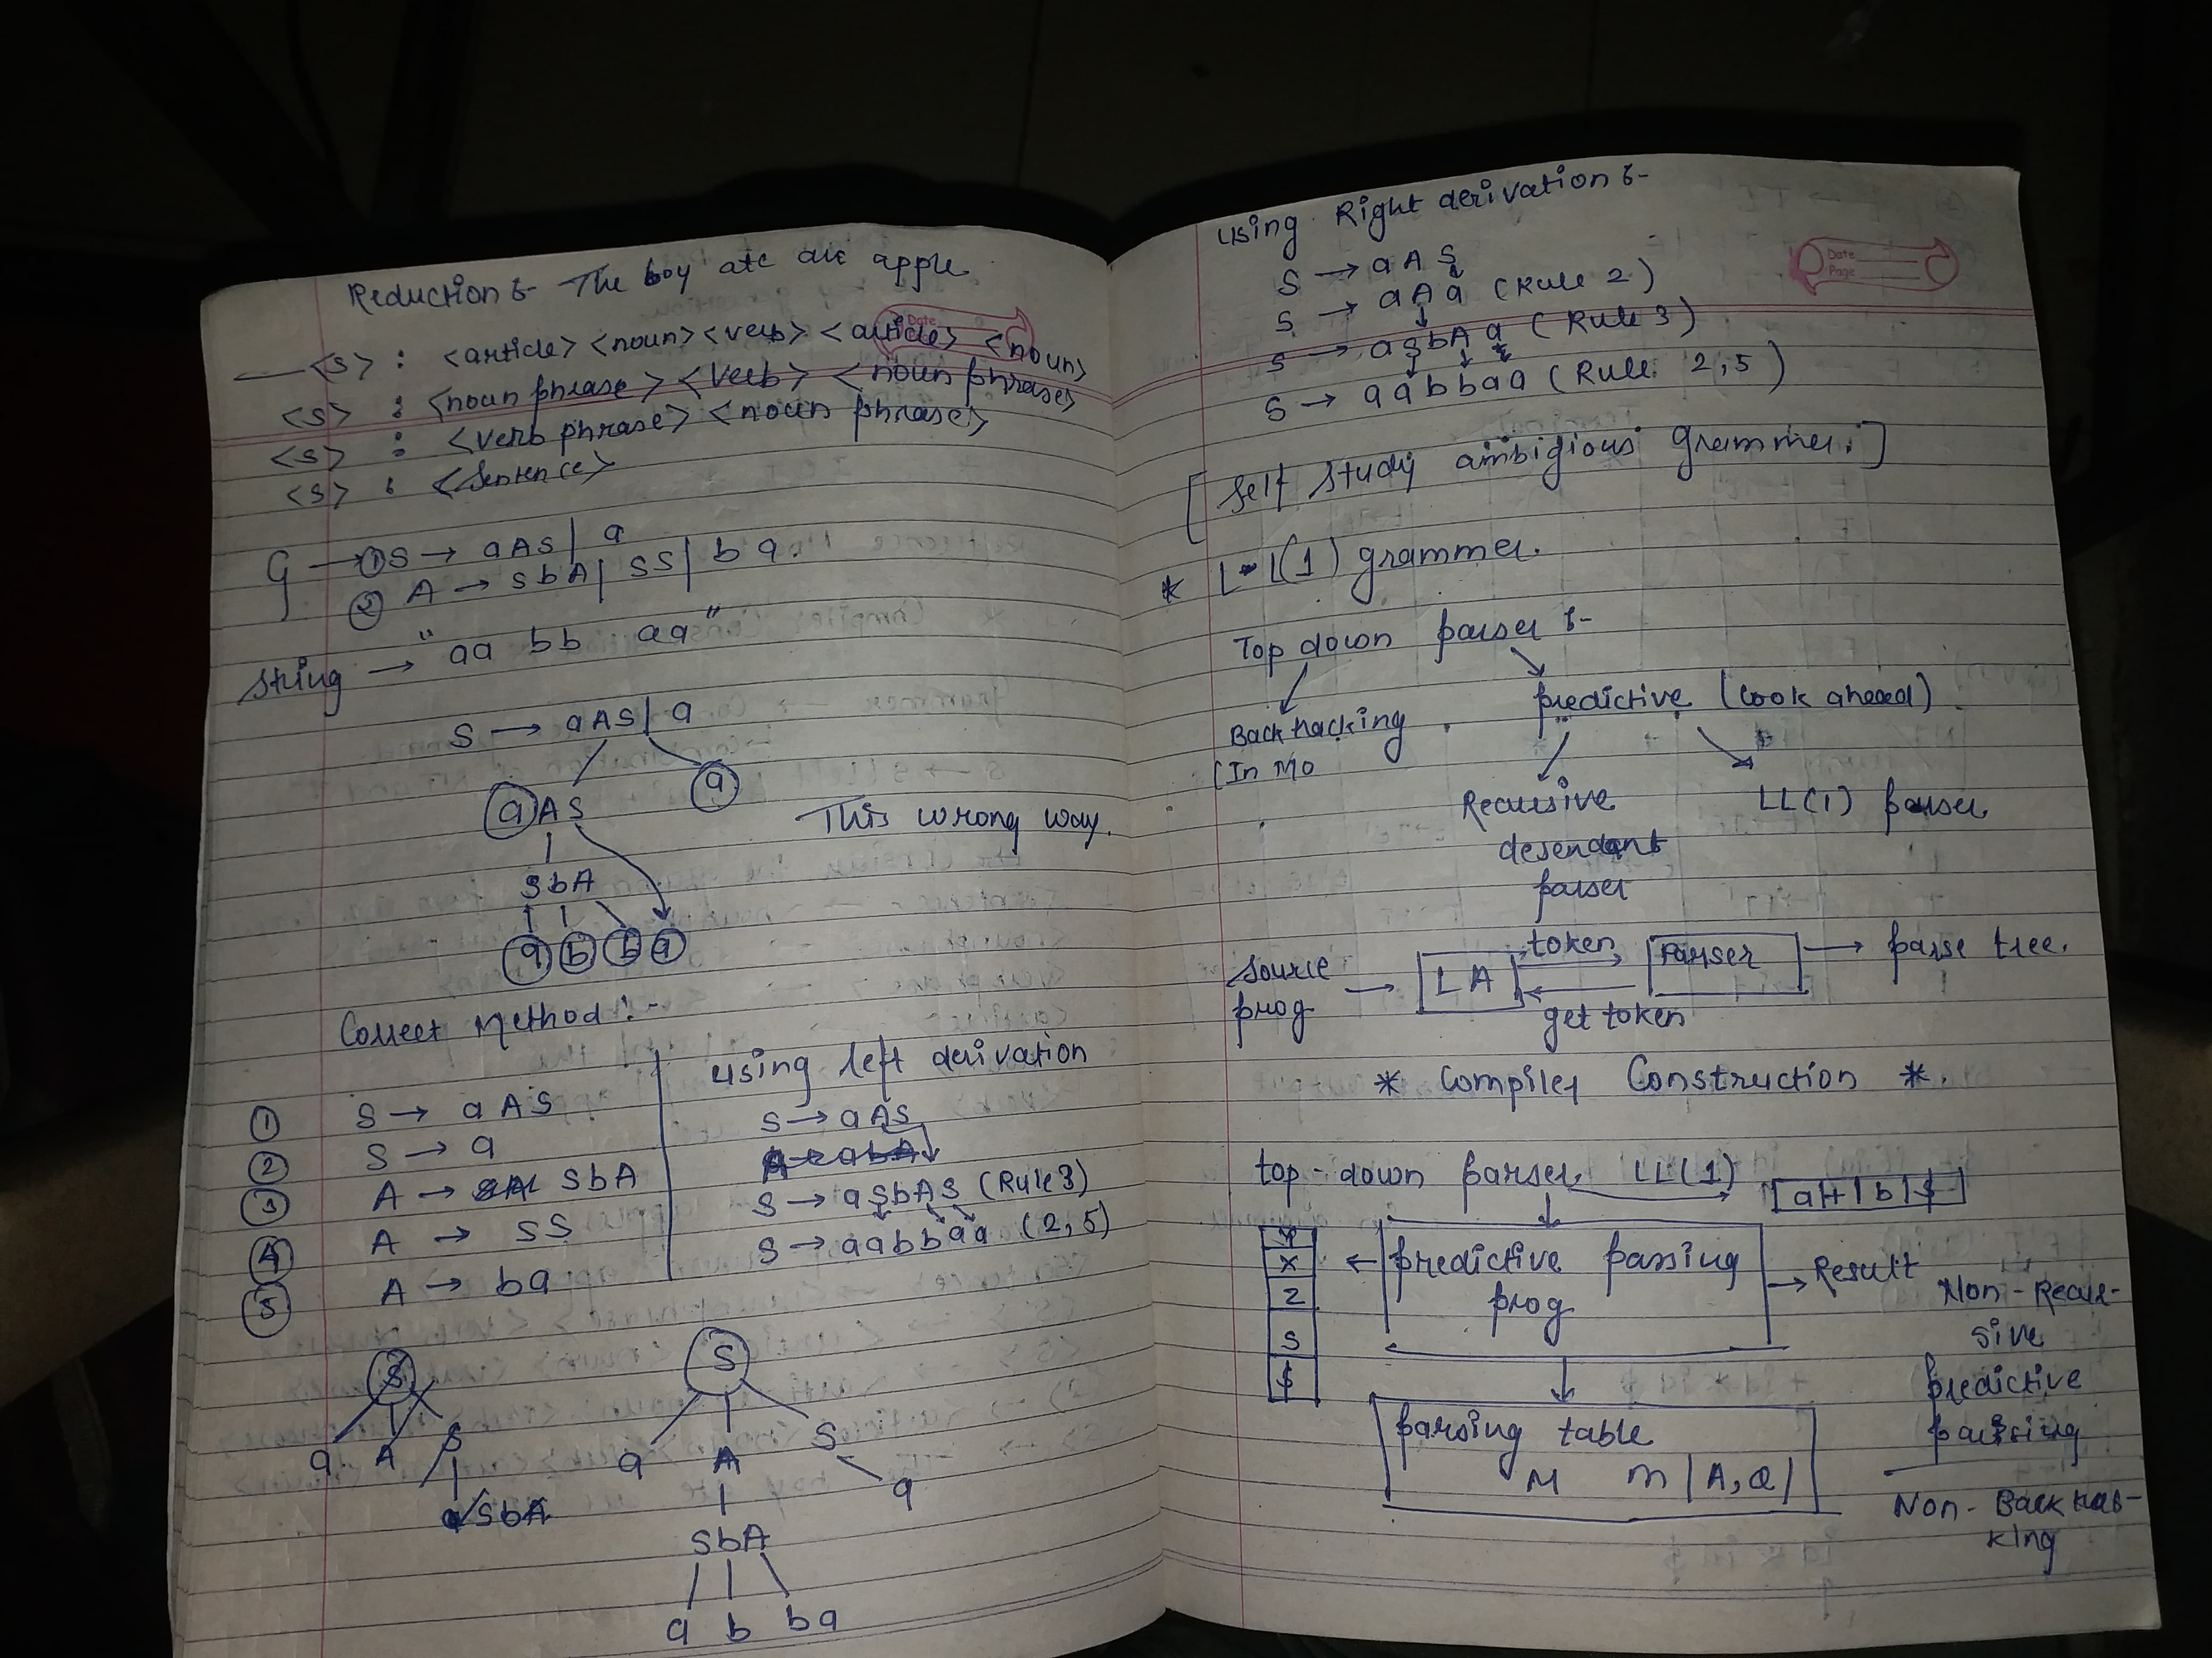 Reduction :- The boy ate an apple
<s> : <article> <noun> <verb> <article> <noun>
<s> : <noun phrase> <verb> <noun phrase>
<s> : <verb phrase> <noun phrase>
<s> : <sentence>
G → ① S → aAS | a
② A → SbA | SS | ba.
String → "aa bb aa"
S → aAS | a
aAS a
This wrong way.
SbA
a b b a
Correct Method :-
① S → aAS
② S → a
③ A → SbA
④ A → SS
⑤ A → ba
using left derivation
S → aAS
S → aSbAS (Rule 3)
S → aabbaa (2,5)
S
a A S
a SbA
S
a A S
a
SbA
a b ba
Date
Page
Using Right derivation :-
S → aAS
S → aAa (Rule 2)
S → aSbAa (Rule 3)
S → aabbaa (Rule 2,5)
[Self Study ambigious Grammer.]
* L-L(1) grammer.
Top down parser :-
Backtracking
(In Mo
predictive (look ahead)
Recursive
desendant
parser
LL(1) parser
Source
prog → LA
token
get token
Parser → parse tree.
* Compiler Construction *.
top-down parser LL(1)
a + b $
Y
X
Z
S
$
predictive parsing
prog
→ Result
parsing table
M M[A,a]
Non-Recur-
sive
predictive
parsing
Non-Backtrac-
king